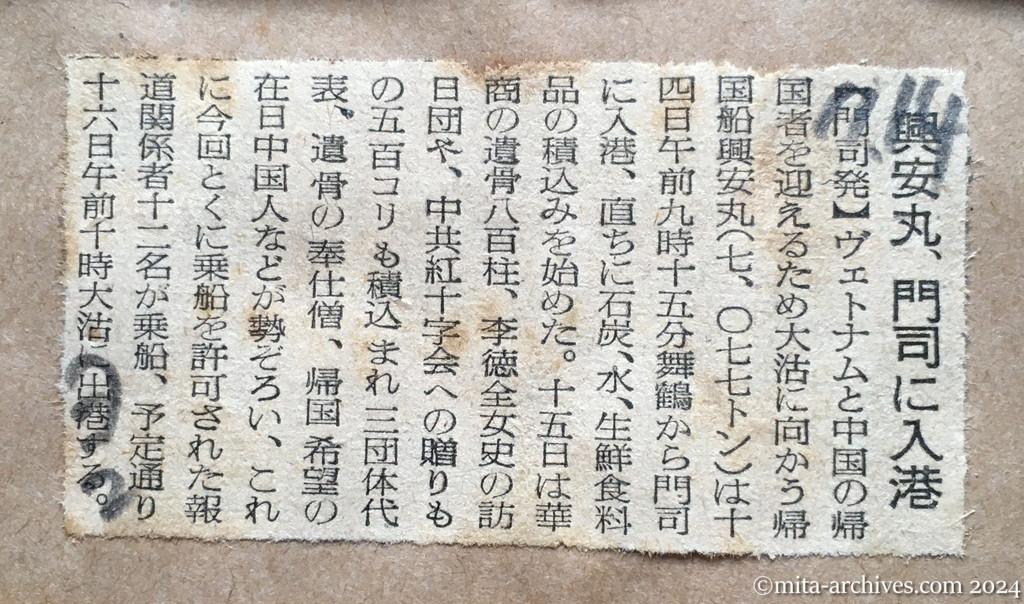 興安丸、門司に入港
【門司発】ヴェトナムと中国の帰
国者を迎えるため大沽に向かう帰
国船興安丸(七、〇七七トン)は十
四日午前九時十五分舞鶴から門司
に入港、直ちに石炭、水、生鮮食料
品の積込みを始めた。十五日は華
商の遺骨八百柱、李徳全女史の訪
日団や、中共紅十字会への贈りも
の五百コリも積込まれ三団体代
表、遺骨の奉仕僧、帰国希望の
在日中国人などが勢ぞろい、これ
に今回とくに乗船を許可された報
道関係者十二名が乗船、予定通り
十六日午前十時大沽に出港する。
©mita-archives.com 2024